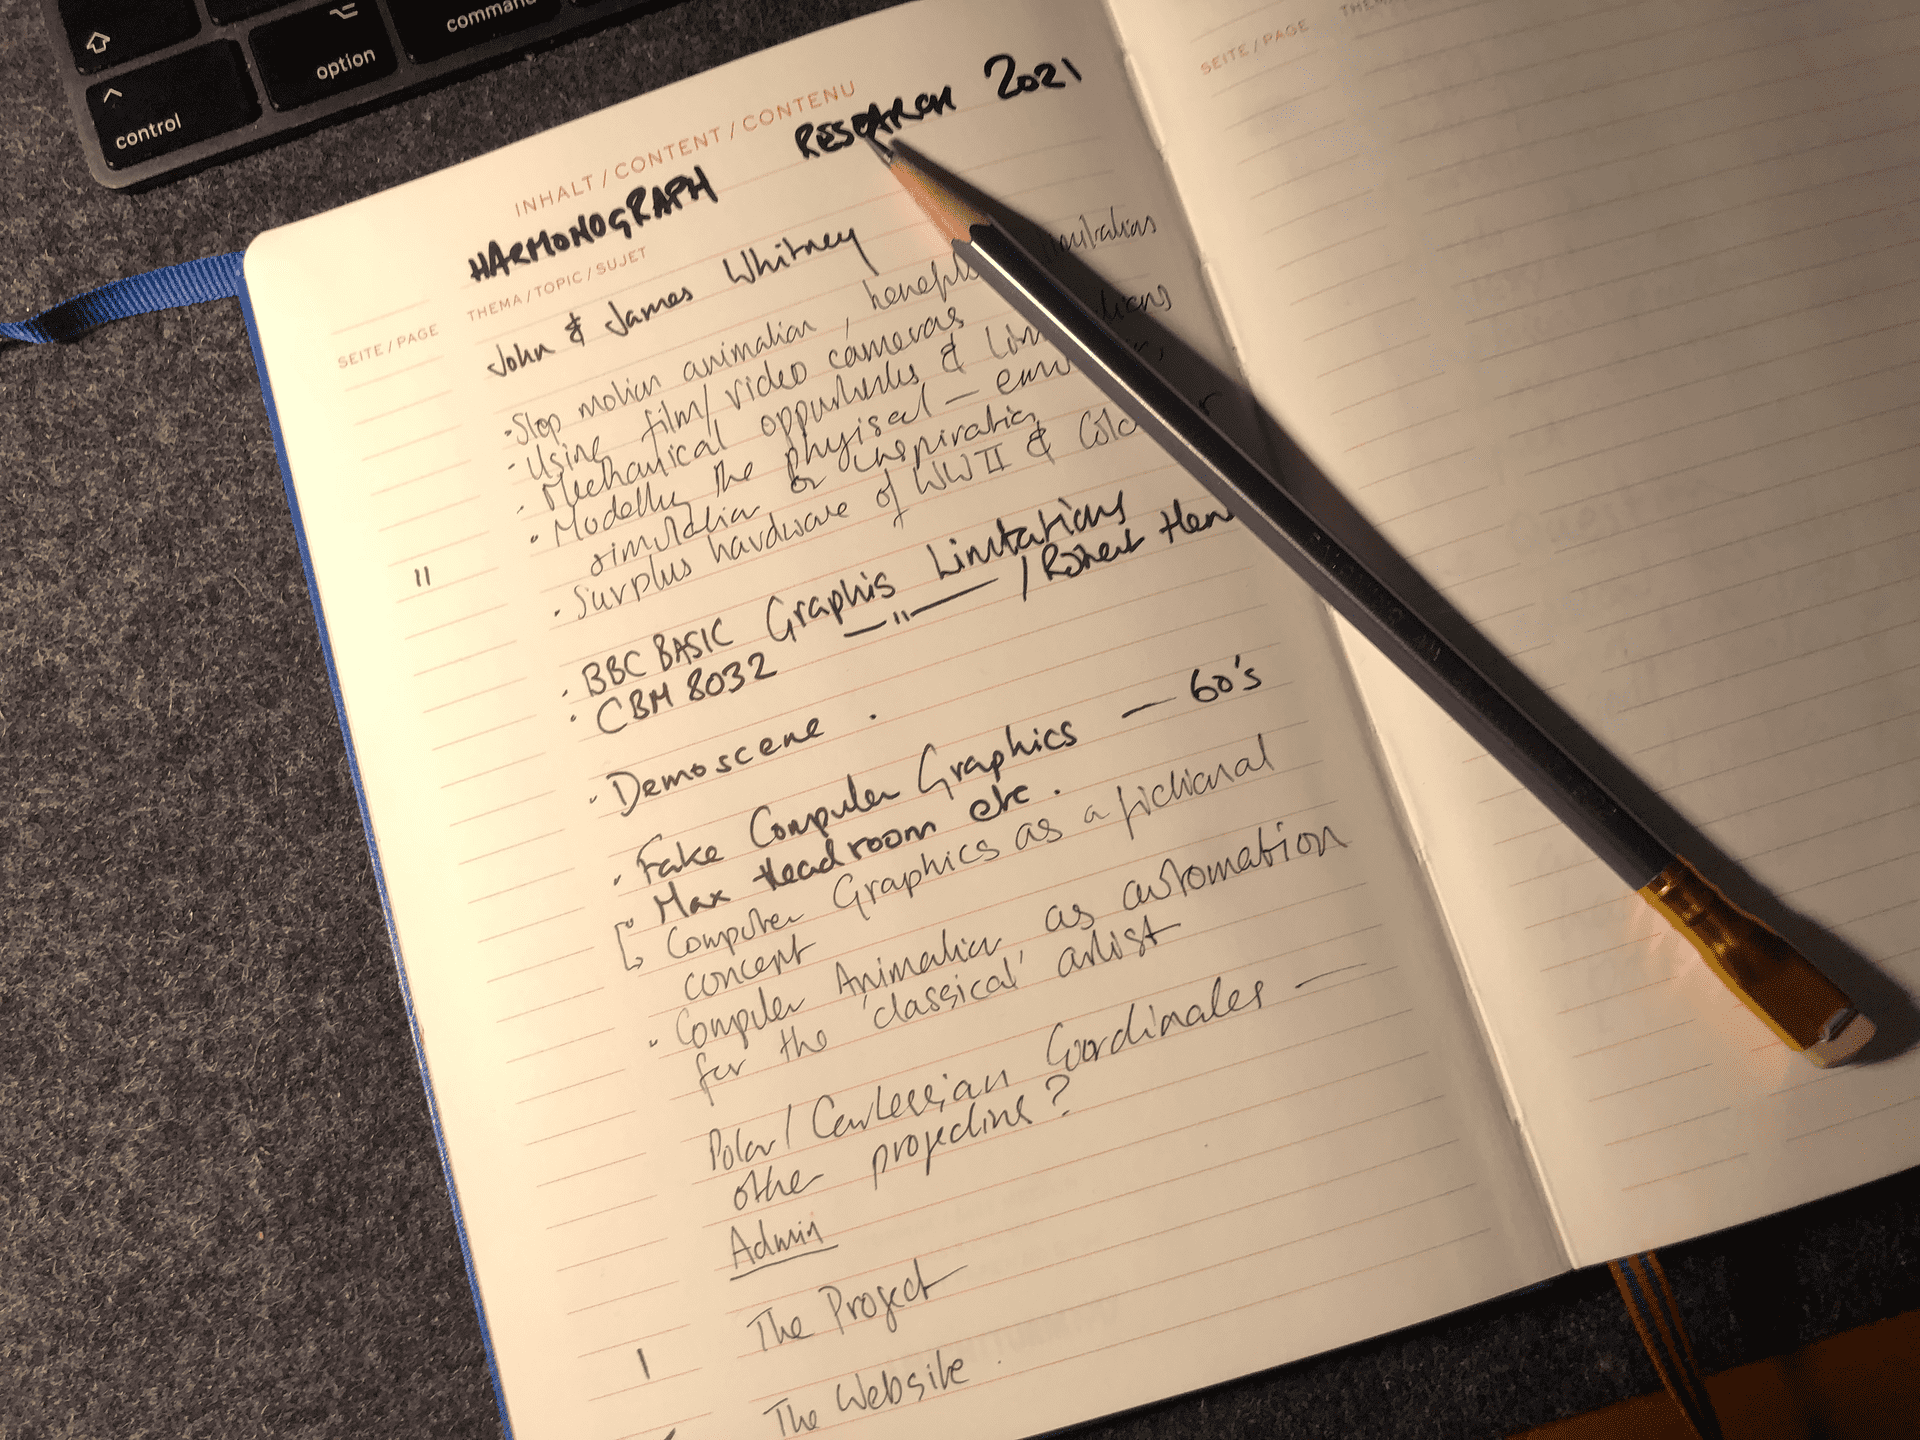 command
option
control
INHALT / CONTENT / CONTENU
HARMONOGRAPH RESEARCH 2021
SEITE / PAGE THEMA / TOPIC / SUJET
John & James Whitney
· Stop motion animation, benefits limitations
· Using film/video cameras
· Mechanical opportunities & Limitations
· Modelling the phyisal —
simulation or inspiration
· Surplus hardware of WWII &
11
· BBC BASIC Graphis Limitations
· CBM 8032 — " — / Robert
· Demoscene .
· Fake Computer Graphics — 60's
· Max Headroom etc .
Computer Graphics as a fictional
concept
· Computer Animation, as automation
for the 'classical' artist
Polar / Cartessian Coordinates —
other projections?
Admin
The Project
1
The Website .
SEITE / PAGE